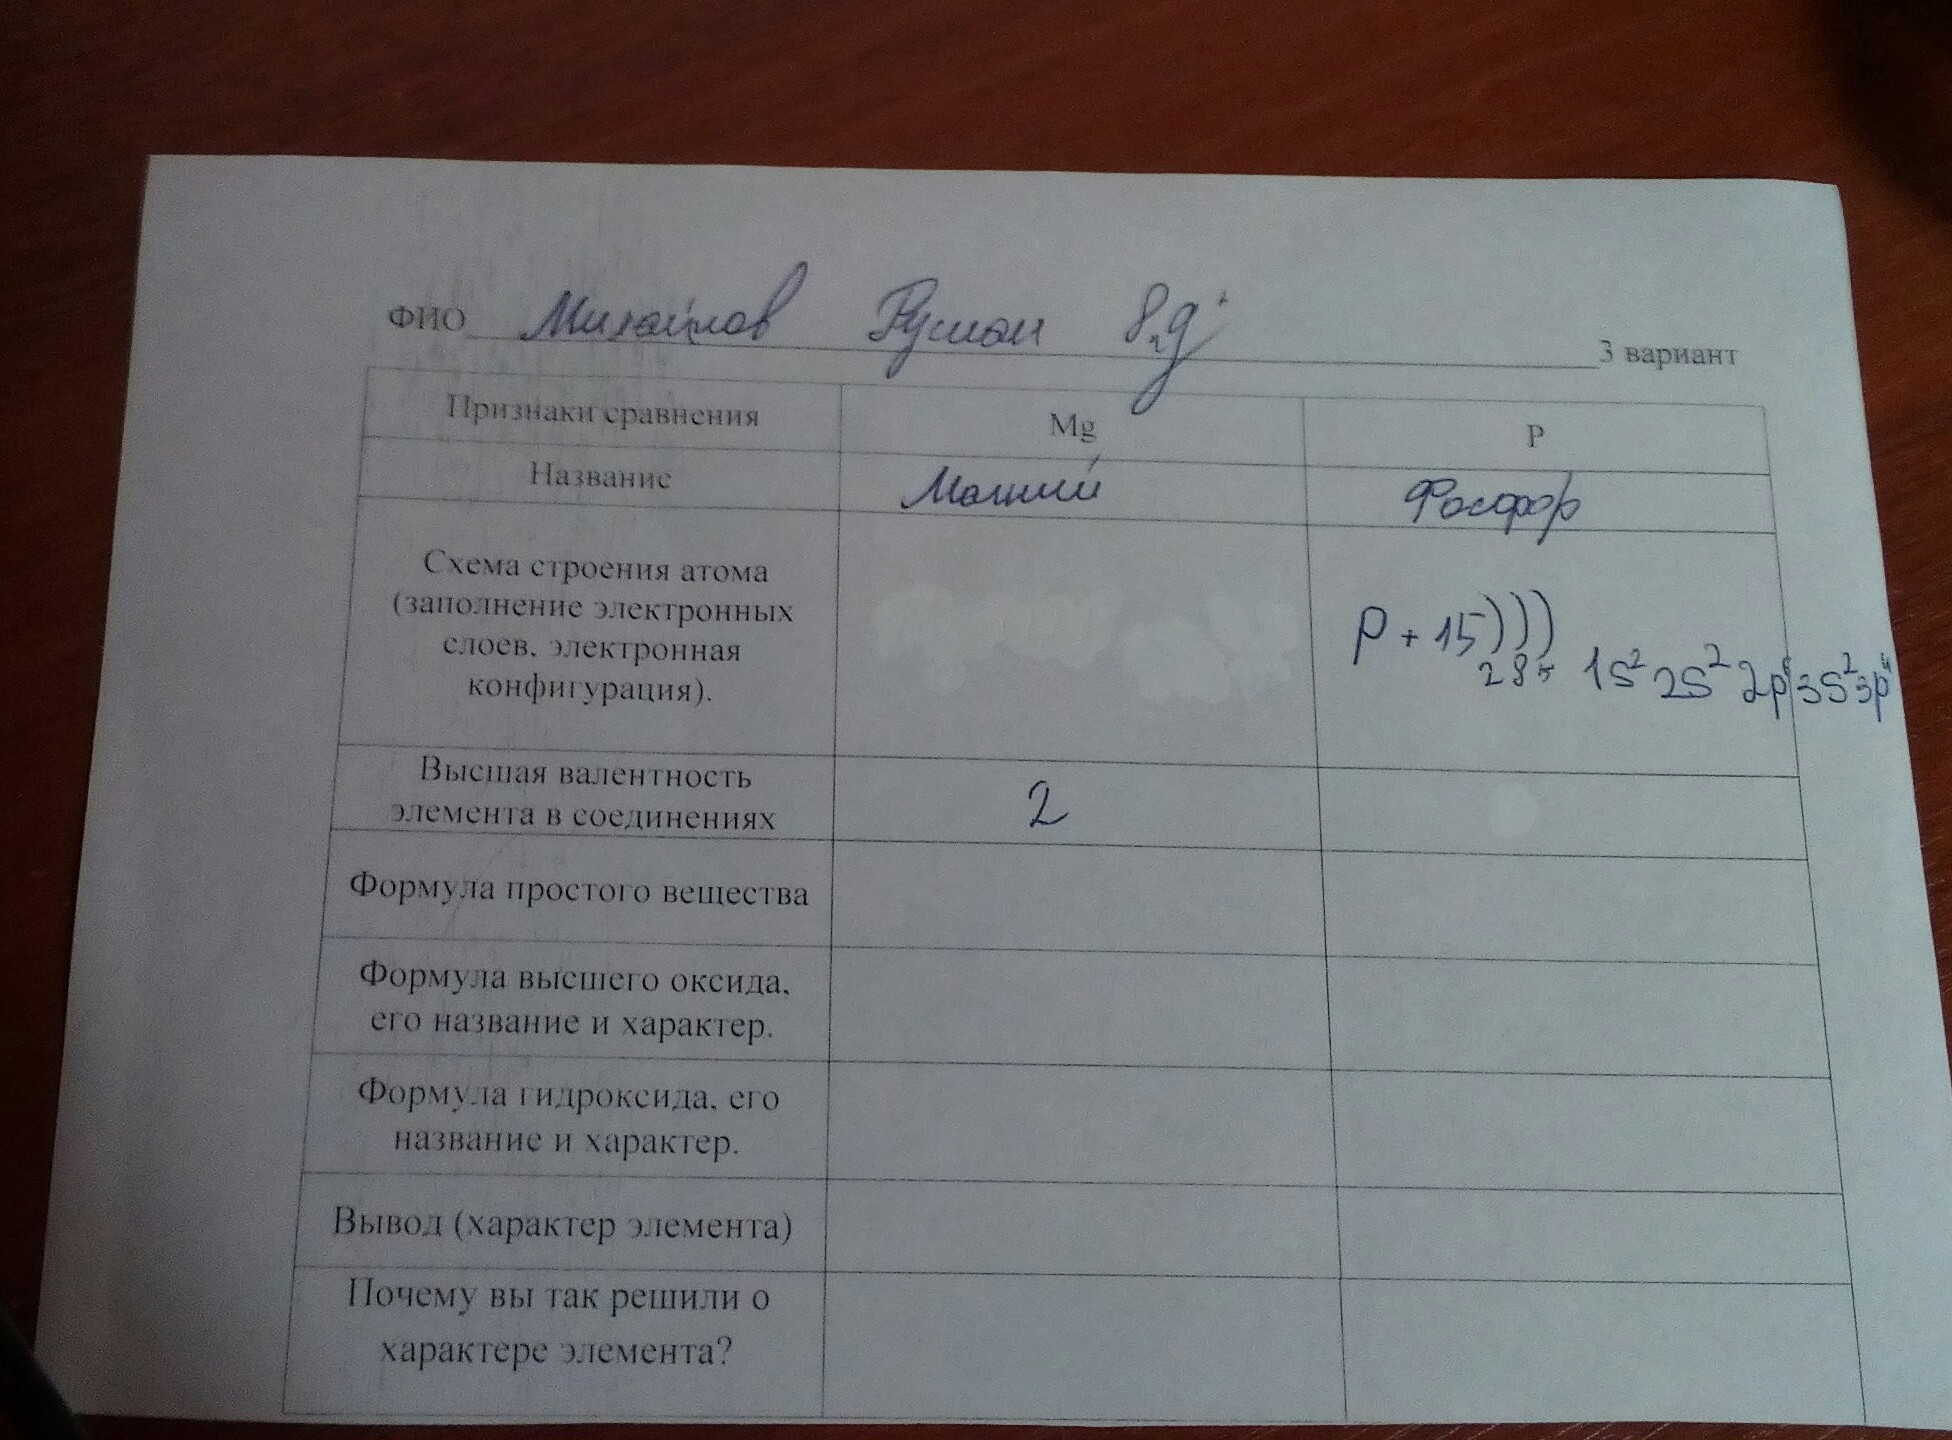 ФИО Михайлов Руслан 8 "д" 3 вариант
Признаки сравнения Mg P
Название Магний Фосфор
Схема строения атома
(заполнение электронных
слоев, электронная
конфигурация).
P +15)))
2 8 5 1s² 2s² 2p⁶ 3s² 3p
Высшая валентность
элемента в соединениях
2
Формула простого вещества
Формула высшего оксида,
его название и характер.
Формула гидроксида, его
название и характер.
Вывод (характер элемента)
Почему вы так решили о
характере элемента?